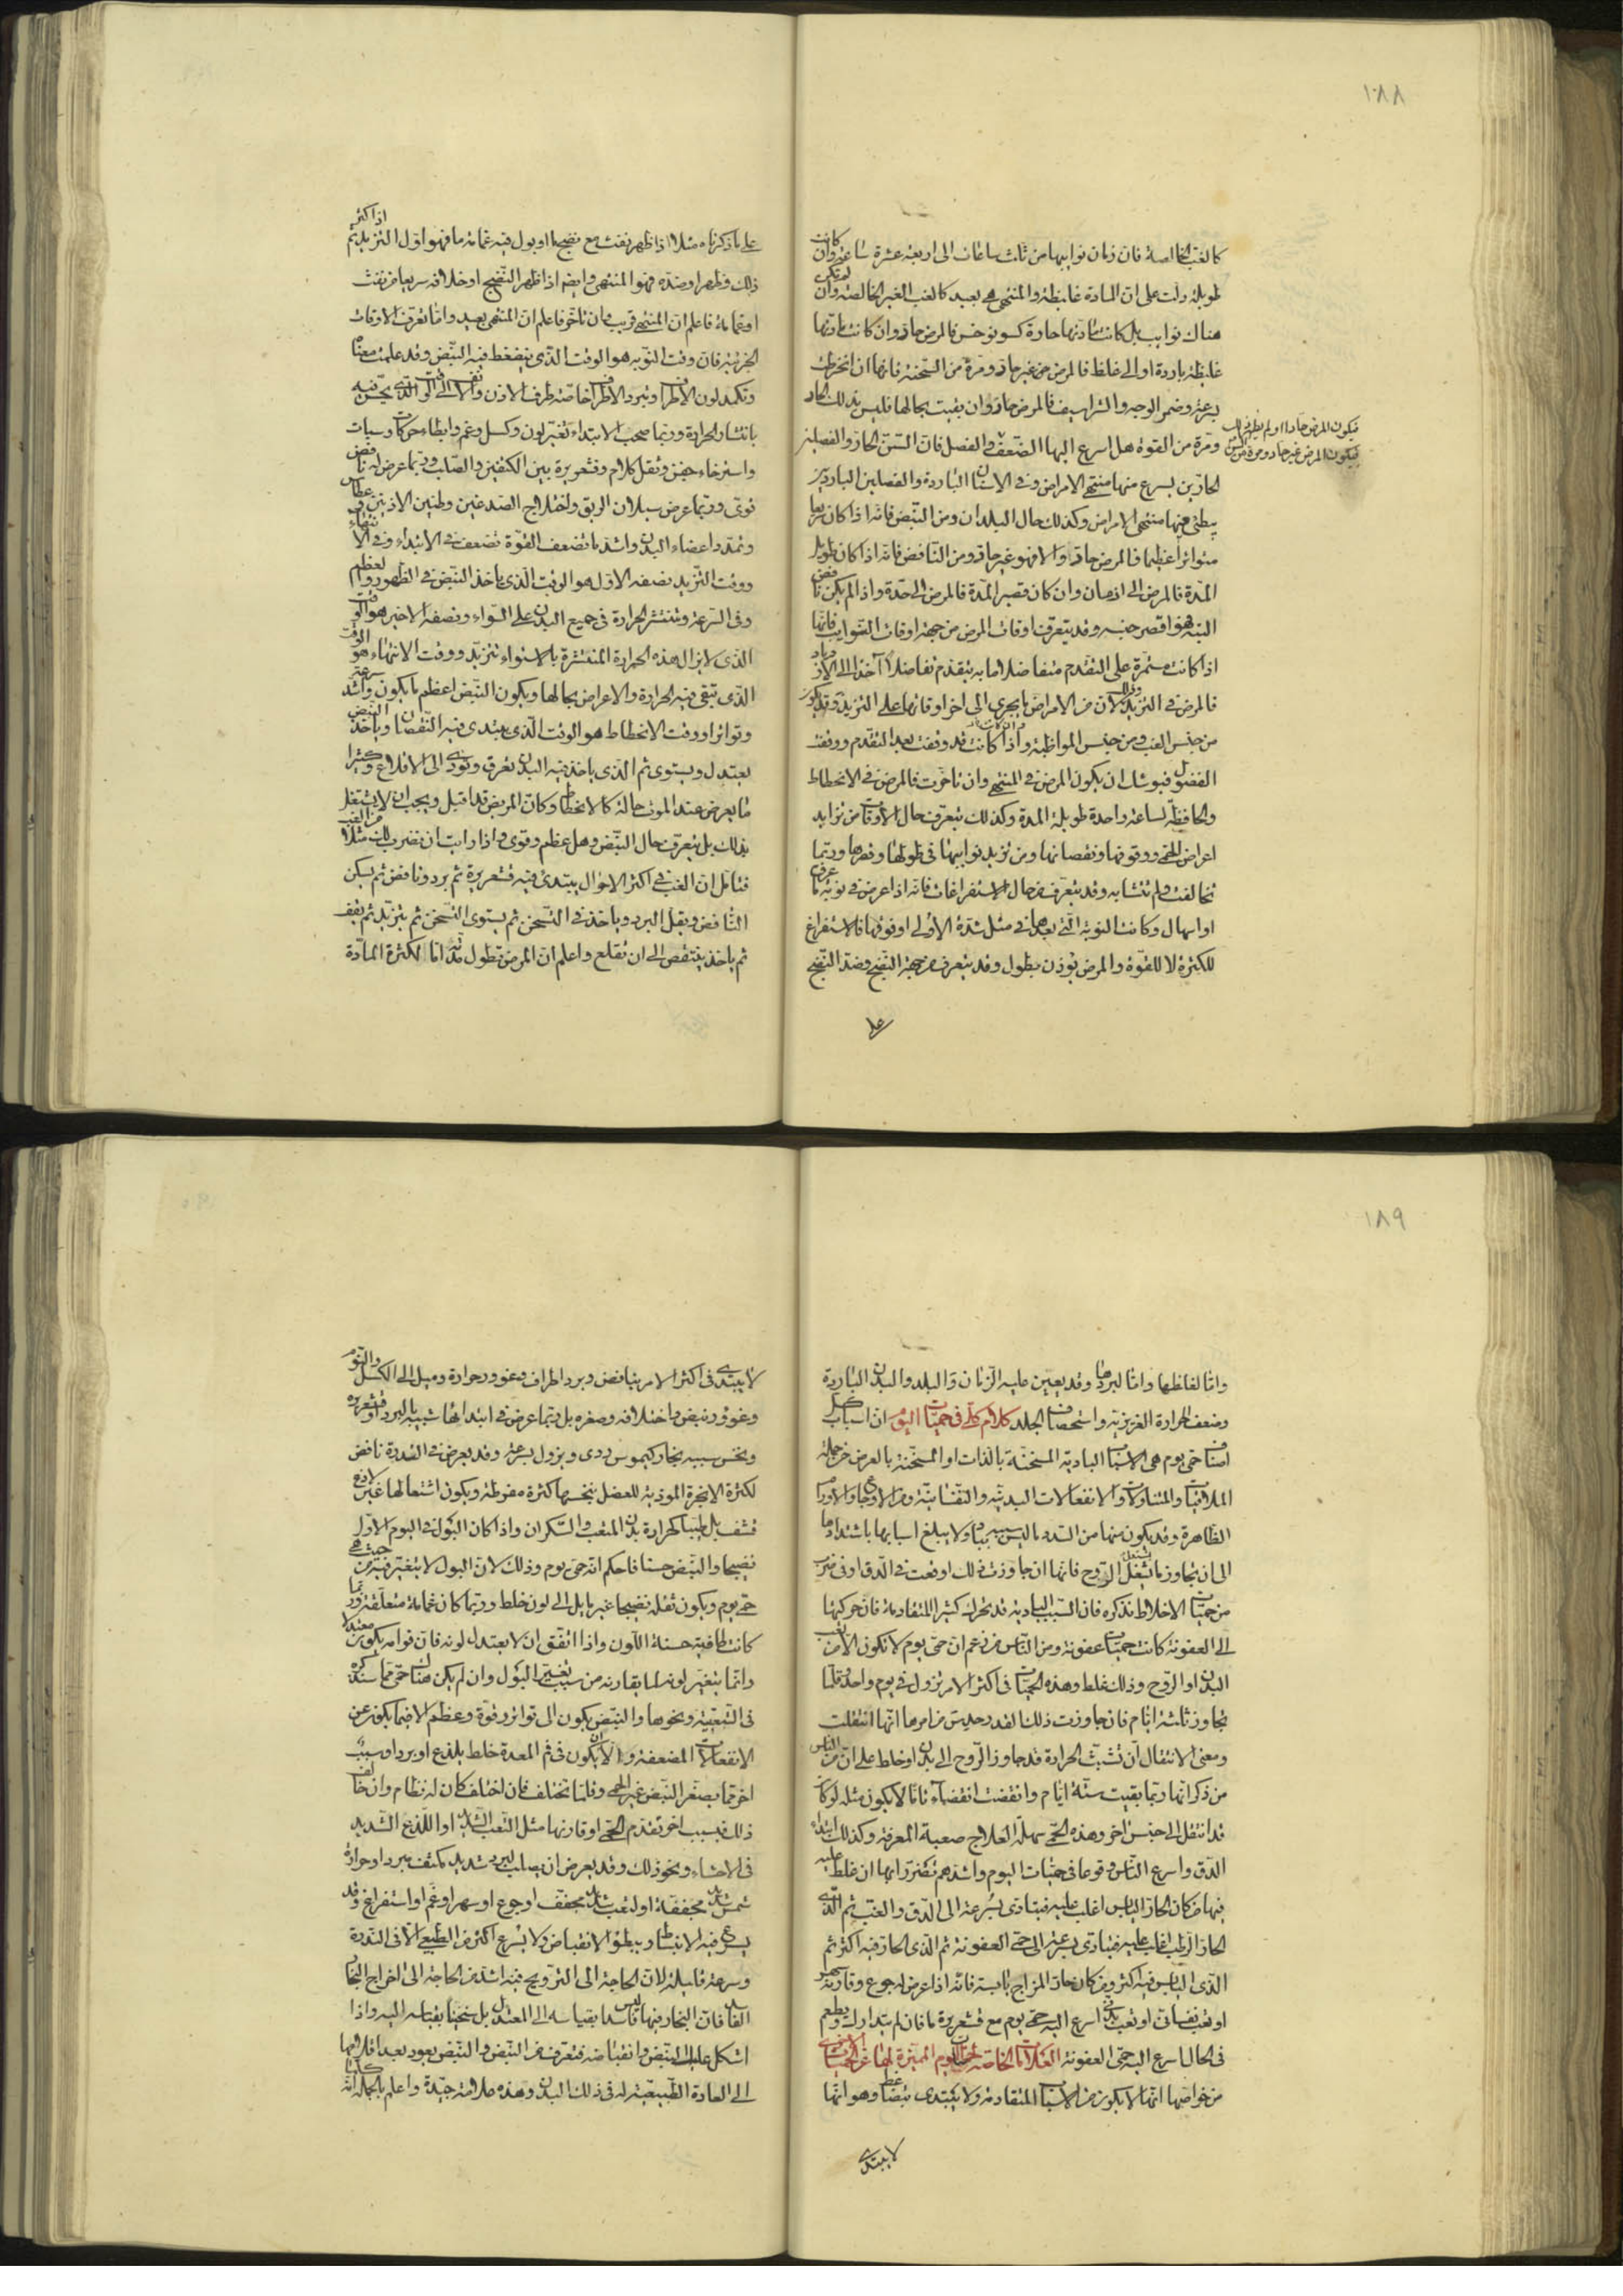 ١٨٨
كالغب الخالصة فان زمان نوايبها من ثلث ساعات الى اربعة عشرة ساعة وان كانت
طويلة دلت على ان المادة غليظة والمنتهى بعيد كالغب الغير الخالصة وان لم تكن
هناك نوايب بل كانت مادتها حادة كسونوخس فالمرض حاد وان كانت مادتها
غليظة باردة او الى غلظ فالمرض غير حاد ومرة من السحنة فانها ان انخرطت
بسرعة وضمر الوجه والشراسيف فالمرض حاد وان بقيت بحالها فليس بذلك الحاد
ومرة من القوة هل اسرع اليها الضعف والفصل فان السن الحار والفصلين
فيكون المرض حادا او لم يظهر ذلك
فيكون المرض غير حاد ومرة من السن
الحارين يسرع منها منتهى الامراض وفى الاسنان الباردة والفصلين الباردين
يبطئ فيها منتهى الامراض وكذلك حال البلدان ومن النبض فانه اذا كان سريعا
متواترا عظيما فالمرض حاد والا فهو غير حاد ومن النافض فانه اذا كان طويل
المدة فالمرض الى ازمان وان كان قصير المدة فالمرض الى حدة واذا لم يكن نافض
البتة فهو اقصر جنسه وقد يتعرف اوقات المرض من جهة اوقات النوايب فانها
اذا كانت مستمرة على التقدم متفاضلا ما به يتقدم تفاضلا آخذا الى الازدياد
فالمرض فى التزيد لان من الامراض ما يجرى الى اخر اوقاتها على التزيد وقد يكون
من جنس الغب ومن جنس المواظبة واذا كانت قد وقفت بعد التقدم ووقفت
الفضول فيوشك ان يكون المرض فى المنتهى وان تاخرت فالمرض فى الانحطاط
والحافظة لساعة واحدة طويلة المدة وكذلك يتعرف حال الاوقات من تزايد
اعراض الحمى ووقوفها ونقصانها ومن تزيد نوايبها فى طولها وقصرها وربما
تخالفت ولم تتشابه وقد يتعرف من حال الاستفراغات فانه اذا عرض فى نوبة ما عرق
او اسهال وكانت النوبة التى بعدها فى مثل شدة الاولى او فوقها فالاستفراغ
للكثرة لا للقوة والمرض يؤذن بطول وقد يتعرف من جهة النضج وضد النضج
على
على ما ذكرناه مثلا اذا ظهر نفث مع نضج ما او بول فيه غمامة ما فهو اول التزيد ثم اذا كثر
ذلك وظهر او ضده فهو المنتهى وايضا اذا ظهر النضج او خلافه سريعا من نفث
او غمامة فاعلم ان المنتهى قريب وان تاخر فاعلم ان المنتهى بعيد واما تعرف الاوقات
الجزئية فان وقت النوبة هو الوقت الذى ينضغط فيه النبض وقد علمت معناه
وتكمد لون الاطراف وتبرد الاطراف خاصة طرف الاذن والانف الى الوقت الذى يحس فيه
بانتشار الحرارة وربما صحب الابتداء تغير لون وكسل وغم وابطاء حركات وسبات
واسترخاء جفن وثقل كلام وقشعريرة بين الكتفين والصلب وربما عرض له نافض
قوى وربما عرض سيلان الريق واختلاج الصدغين وطنين الاذنين وعطاس
وتمدد اعضاء البدن واشد ما تضعف القوة تضعف فى الابتداء وفى الانتهاء
ووقت التزيد نصفه الاول هو الوقت الذى ياخذ النبض فى الظهور والعظم
وفى السرعة وتنتشر الحرارة فى جميع البدن على السواء ونصفه الاخير هو الوقت
الذى لا يزال هذه الحرارة المنتشرة بالاستواء تتزيد ووقت الانتهاء هو الوقت
الذى تبقى فيه الحرارة والاعراض بحالها ويكون النبض اعظم ما يكون واشد سرعة
وتواترا ووقت الانحطاط هو الوقت الذى يبتدى فيه النقصان وياخذ النبض
يعتدل ويستوى ثم الذى ياخذ فيه البدن يعرق ويؤدى الى الاقلاع وكثيرا
ما يعرض عند الموت حالة كالانحطاط وكان المريض قد اقبل ويجب ان لا يشتغل
بذلك بل يتعرف حال النبض وهل عظم وقوى واذا رايت ان نضرب لك مثلا من الغب
فتامل ان الغب فى اكثر الاحوال يبتدى فيه قشعريرة ثم برد ونافض ثم يسكن
النافض ويقل البرد وياخذ فى التسخن ثم يستوى التسخن ثم يتزيد ثم يقف
ثم ياخذ ينتقص الى ان تقلع واعلم ان المرض تطول مدته اما لكثرة المادة
١٨٩
واما لغلظها واما لبردها وقد يعين عليه الزمان والبلد والبدن الباردة
وضعف الحرارة الغريزية واستحصاف الجلد كلام كلى فى حميات اليوم ان اسباب كل
اصناف حمى يوم هى الاسباب البادية المسخنة بالذات او المسخنة بالعرض من جملة
الملاقيات والمتناولات والانفعالات البدنية والنفسانية ومن الاوجاع والاورام
الظاهرة وقد يكون منها من السدد ما ليس سببه باديا ولا يبلغ اسبابها باشتدادها
الى ان يجاوز ما يشعل الروح فانها ان جاوزت ذلك اوقعت فى الدق او فى ضرب
من حميات الاخلاط نذكره فان السبب البادى قد يحرك كثيرا المتقادمة فان حركتها
الى العفونة كانت حميات عفونة ومن الناس من زعم ان حمى يوم لا تكون الا من تعب
البدن او الروح وذلك غلط وهذه الحميات فى اكثر الامر يزول فى يوم واحد وقلما
تجاوز ثلثة ايام فان جاوزت ذلك القدر حدس من امرها انها انتقلت
ومعنى الانتقال ان تشبث الحرارة قد جاوز الروح الى بدن او خلط على ان من الناس
من ذكر انها ربما بقيت ستة ايام وانقضت انقضاء تاما لا يكون مثله لو كان
قد انتقل الى جنس اخر وهذه الحمى سهلة العلاج صعبة المعرفة وكذلك ابتداء
الدق واسرع الناس وقوعا فى حميات اليوم واشدهم تضررا بها ان غلط عليه
فيها من كان الحار اليابس اغلب عليه فيتادى بسرعة الى الدق والغب ثم الذى
الحار الرطب اغلب عليه فيتادى بسرعة الى حمى العفونة ثم الذى الحار فيه اكثر ثم
الذى اليابس فيه اكثر ومن كان حار المزاج يابسه فانه اذا عرض له جوع وقارنه سهر
او تعب نفسانى او تعب بدنى اسرع اليه حمى يوم مع قشعريرة ما فان لم يتدارك ويطعم
فى الحال اسرع اليه حمى العفونة العلامات الخاصة بحميات اليوم المميزة لها عن الحميات الاخرى
من خواصها انها لا يكون من الاسباب المتقادمة ولا يبتدى وهو انها
لا يبتدى
لا يبتدى فى اكثر الامر بنافض وبرد اطراف وغور حرارة وميل الى الكسل والنوم
وغؤور نبض واختلافه وصغره بل ربما عرض فى ابتدائها شبيه بالبرد او قشعريرة
ونخس سببه بخار كيموس ردى ويزول بسرعة وقد يعرض فى الندرة نافض
لكثرة الابخرة الموذية للعضل بنخسها كثرة مفرطة ويكون اشتعالها غير لاذع
قشف بل طيبا كحرارة بدن المتعب والسكران واذا كان البول فى اليوم الاول
نضيجا والنبض حسنا فاحكم انه حمى يوم وذلك لان البول لا يتغير فيه من حيث هى
حمى يوم ويكون ثفله نضيجا غير مايل الى لون خلط وربما كان غمامة متعلقة وربما
كانت طافية حسنة اللون واذا اتفق ان لا يعتدل لونه فان قوامه يكون معتدلا
وانما يتغير لونه لما يقارنه من سبب تغيير البول وان لم يكن هناك حمى مما سنذكره
فى التعبية ونحوها والنبض يكون الى تواتر وقوة وعظم الا فيما يكون عن
الانفعالات المضعفة والا ان يكون فى فم المعدة خلط يلذع او برد او سبب
اخر مما يصغر النبض غير الحمى وقلما تختلف فان اختلف كان له نظام وان خالف
ذلك فبسبب اخر تقدم الحمى او قارنها مثل التعب الشديد او اللذع الشديد
فى الاحشاء ونحو ذلك وقد يعرض ان يصلب لبرد شديد مكثف مبرد او حرارة
شمس شديدة مجففة او لتعب شديد مجفف او جوع او سهر او غم او استفراغ وقد
يسرع فيه الانبساط ويبطؤ الانقباض ولا يسرع اكثر من الطبيعى الا فى الندرة
وسرعته قليلة لان الحاجة الى الترويح فيه اشد من الحاجة الى اخراج البخار
الفاسد فان البخار فيها ليس فاسدا بقياسه الى المعتدل بل سخينا بقياسه اليه واذا
اشكل عليك النبض وانقباضه فتعرف من النبض والنبض يعود بعد اقلاعها
الى العادة الطبيعية له فى ذلك البدن وهذه علامة جيدة واعلم بالجملة انه